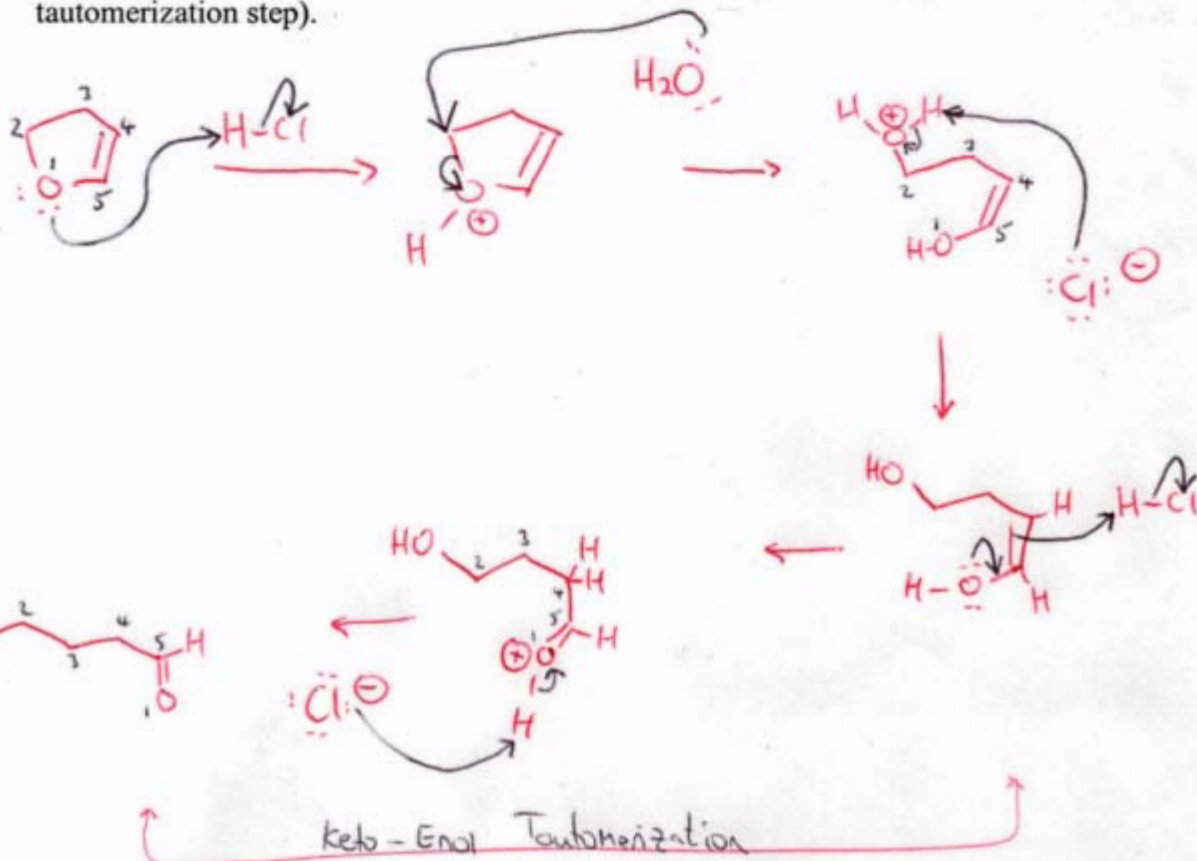 tautomerization step).
3
2
4
1
O
5
H-Cl
H2O
O
H
⊕
H
⊕
H
O
3
2
4
1
H-O
5
:Cl: ⊖
HO
H
H-Cl
H-O
H
HO
2
3
H
H
4
5
H
⊕
1
O
H
:Cl: ⊖
2
4
5
H
3
1
O
Keto-Enol Tautomerization